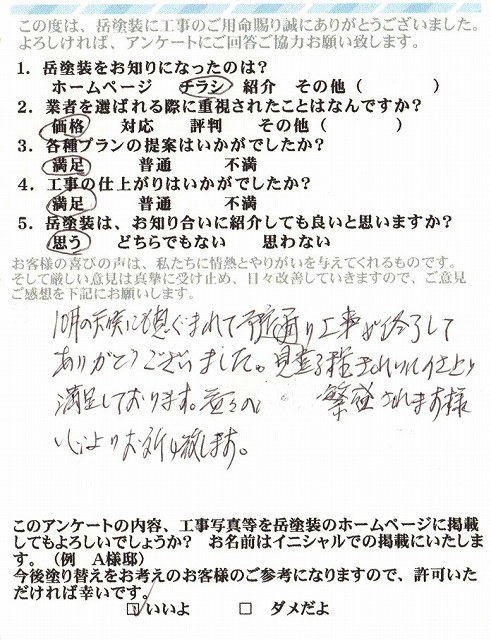 この度は、岳塗装に工事のご用命賜り誠にありがとうございました。
よろしければ、アンケートにご回答ご協力お願い致します。
1. 岳塗装をお知りになったのは?
ホームページ チラシ 紹介 その他( )
2. 業者を選ばれる際に重視されたことはなんですか?
価格 対応 評判 その他( )
3. 各種プランの提案はいかがでしたか?
満足 普通 不満
4. 工事の仕上がりはいかがでしたか?
満足 普通 不満
5. 岳塗装は、お知り合いに紹介しても良いと思いますか?
思う どちらでもない 思わない
お客様の喜びの声は、私たちに情熱とやりがいを与えてくれるものです。
そして厳しい意見は真摯に受け止め、日々改善していきますので、ご意見
ご感想を下記にお願いします。
10月の天候にも恵ぐまれて予定通り工事が終了して
ありがとうございました。見違る様きれいに仕上り
満足しております。益々の 繁盛されます様
心よりお祈り致します。
このアンケートの内容、工事写真等を岳塗装のホームページに掲載
してもよろしいでしょうか? お名前はイニシャルでの掲載にいたしま
す。(例 A様邸)
今後塗り替えをお考えのお客様のご参考になりますので、許可いた
だければ幸いです。
いいよ □ ダメだよ